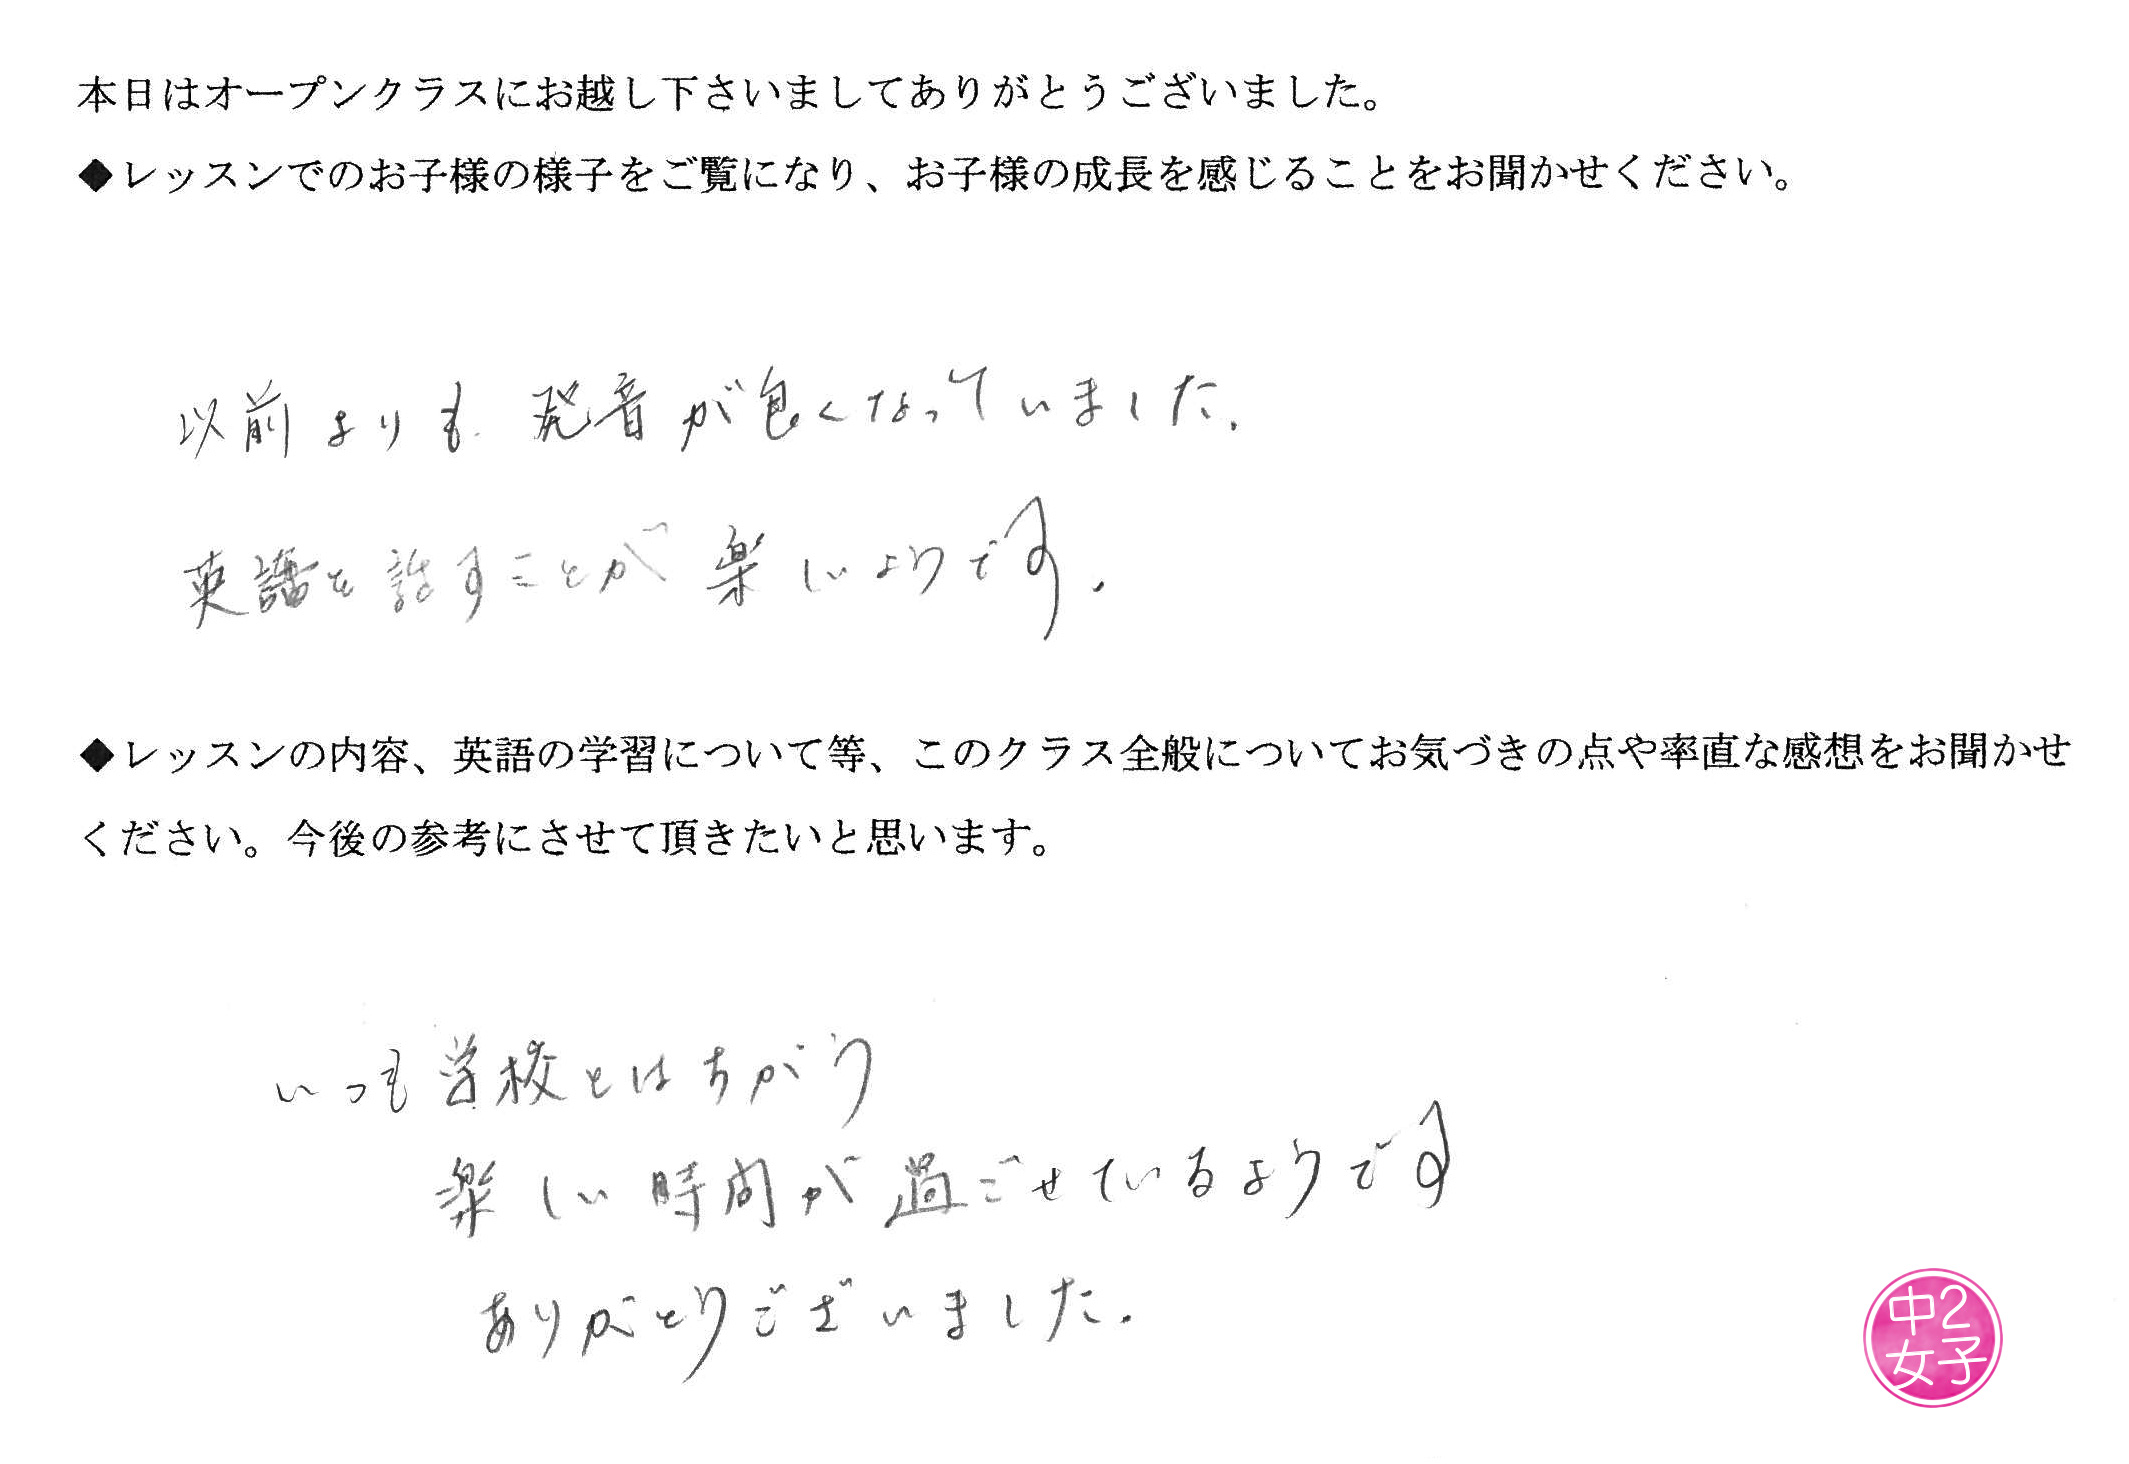 本日はオープンクラスにお越し下さいましてありがとうございました。
◆レッスンでのお子様の様子をご覧になり、お子様の成長を感じることをお聞かせください。
以前よりも発音が良くなっていました。
英語を話すことが楽しいようです。
◆レッスンの内容、英語の学習について等、このクラス全般についてお気づきの点や率直な感想をお聞かせ
ください。今後の参考にさせて頂きたいと思います。
いつも学校とはちがう
楽しい時間が過ごせているようです
ありがとうございました。
中2
女子